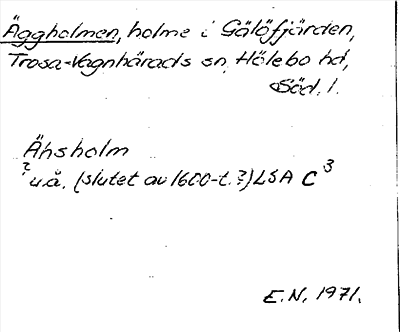 Äggholmen, holme i Gälöfjärden,
Trosa-Vagnhärads sn, Hölebo hd,
Söd. l.
Ähsholm
? u.å. (slutet av 1600-t.?) LSA C 3
E.N. 1971.